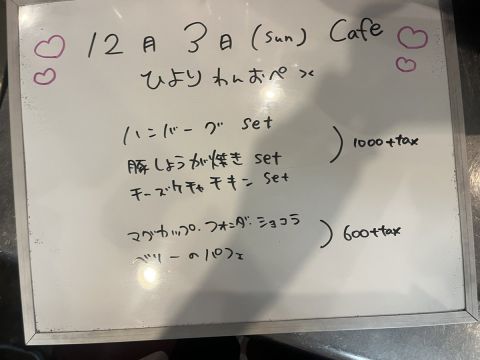 12月3日(sun) Cafe
ひより わんおぺ
ハンバーグ set
豚しょうが焼き set
1000+tax
チーズケチャチキン set
マグカップ・フォンダンショコラ
600+tax
ベリーのパフェ